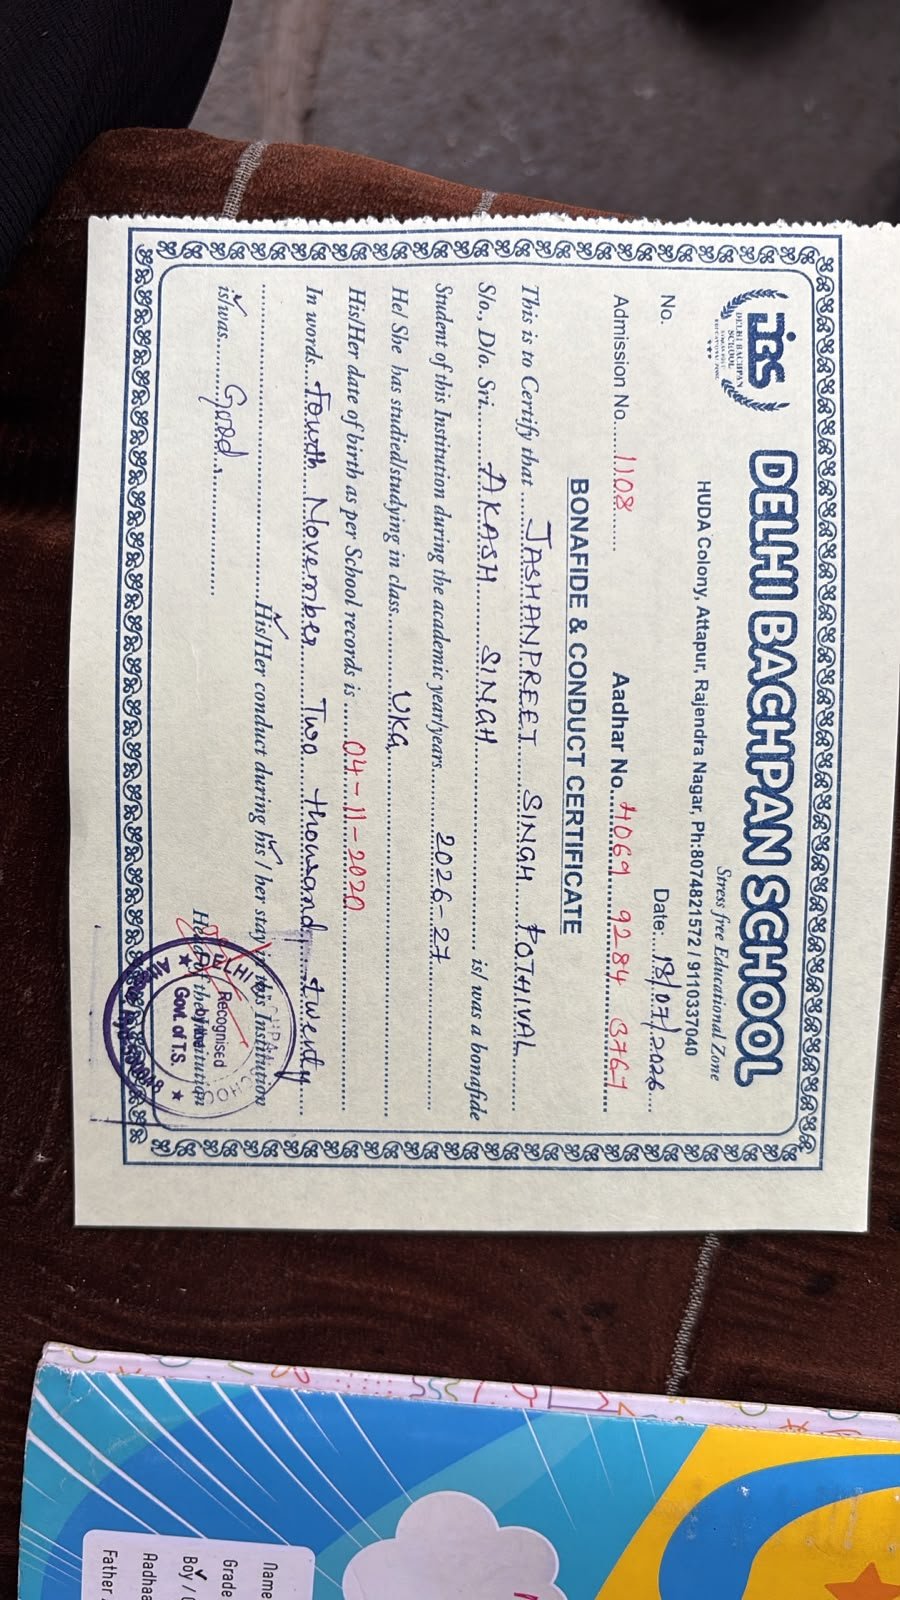 DELHI BACHPAN SCHOOL
DBS
DELHI BACHPAN
SCHOOL
Stress free Educational Zone
HUDA Colony, Attapur, Rajendra Nagar, Ph:8074821572 / 9110337040
No.
Date:..18/07/2026...
Admission No....1108.......
Aadhar No...4069 9284 3761
BONAFIDE & CONDUCT CERTIFICATE
This is to Certify that ....JASHANPREET SINGH POTHIVAL....
S/o., D/o. Sri.......AKASH SINGH............................ is/ was a bonafide
Student of this Institution during the academic year/years........2026-27.......
He/ She has studied/studying in class...........UKG...........................
His/Her date of birth as per School records is ......04-11-2020...................
In words...Fourth November Two thousand, twenty....
.....................................His/Her conduct during his / her stay in this Institution
is/was.......Good.....................
Head of the Institution
DELHI BACHPAN SCHOOL
Recognised
by the
Govt. of T.S.
Name
Grade
Boy /
Aadhaa
Father